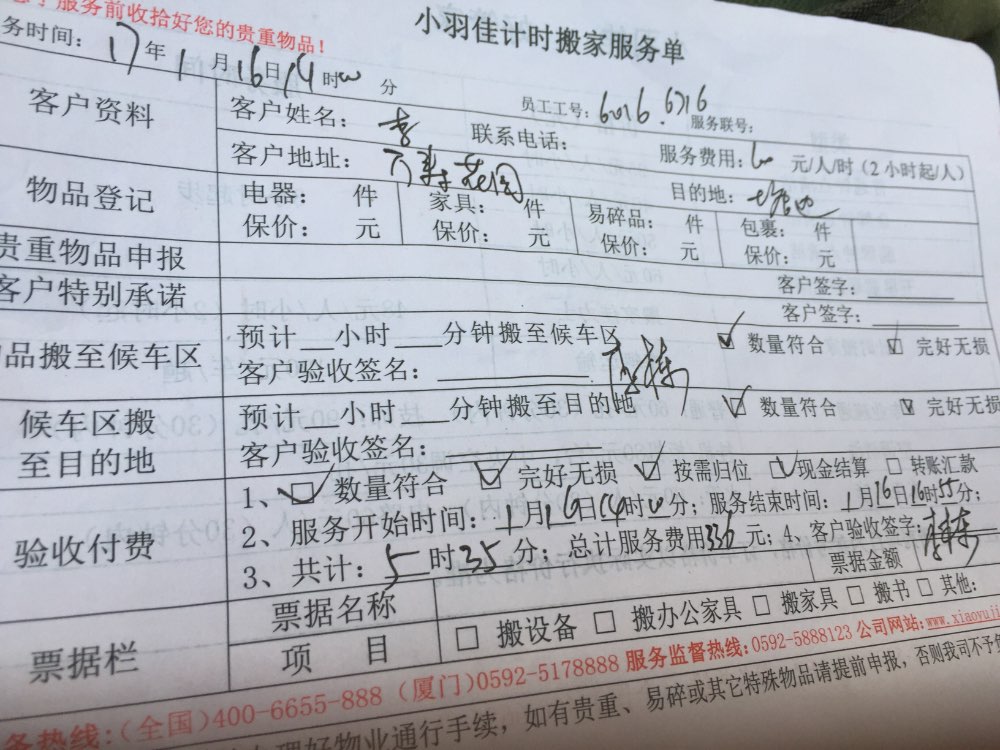 服务前收拾好您的贵重物品!
小羽佳计时搬家服务单
务时间: 17年1月16日14时00分
员工工号: 6016.6716 服务联号:
客户资料
客户姓名: 李 联系电话: 服务费用: 60 元/人/时 (2小时起/人)
客户地址: 万寿花园 目的地:
物品登记
电器: 件 家具: 件 易碎品: 件 包裹: 件
保价: 元 保价: 元 保价: 元 保价: 元
贵重物品申报 客户签字:
客户特别承诺 客户签字:
品搬至候车区
预计 小时 分钟搬至候车区 数量符合 完好无损
客户验收签名:
候车区搬至目的地
预计 小时 分钟搬至目的地 数量符合 完好无损
客户验收签名:
验收付费
1、 数量符合 完好无损 按需归位 现金结算 转账汇款
2、服务开始时间: 1月16日14时0分; 服务结束时间: 1月16日16时55分;
3、共计: 5时35分; 总计服务费用336元; 4、客户验收签字:
票据栏
票据名称 票据金额
项目 搬设备 搬办公家具 搬家具 搬书 其他:
务热线: (全国)400-6655-888 (厦门)0592-5178888 服务监督热线: 0592-5888123 公司网站: www.xiaoyuji
理好物业通行手续, 如有贵重、易碎或其它特殊物品请提前申报, 否则我司不予